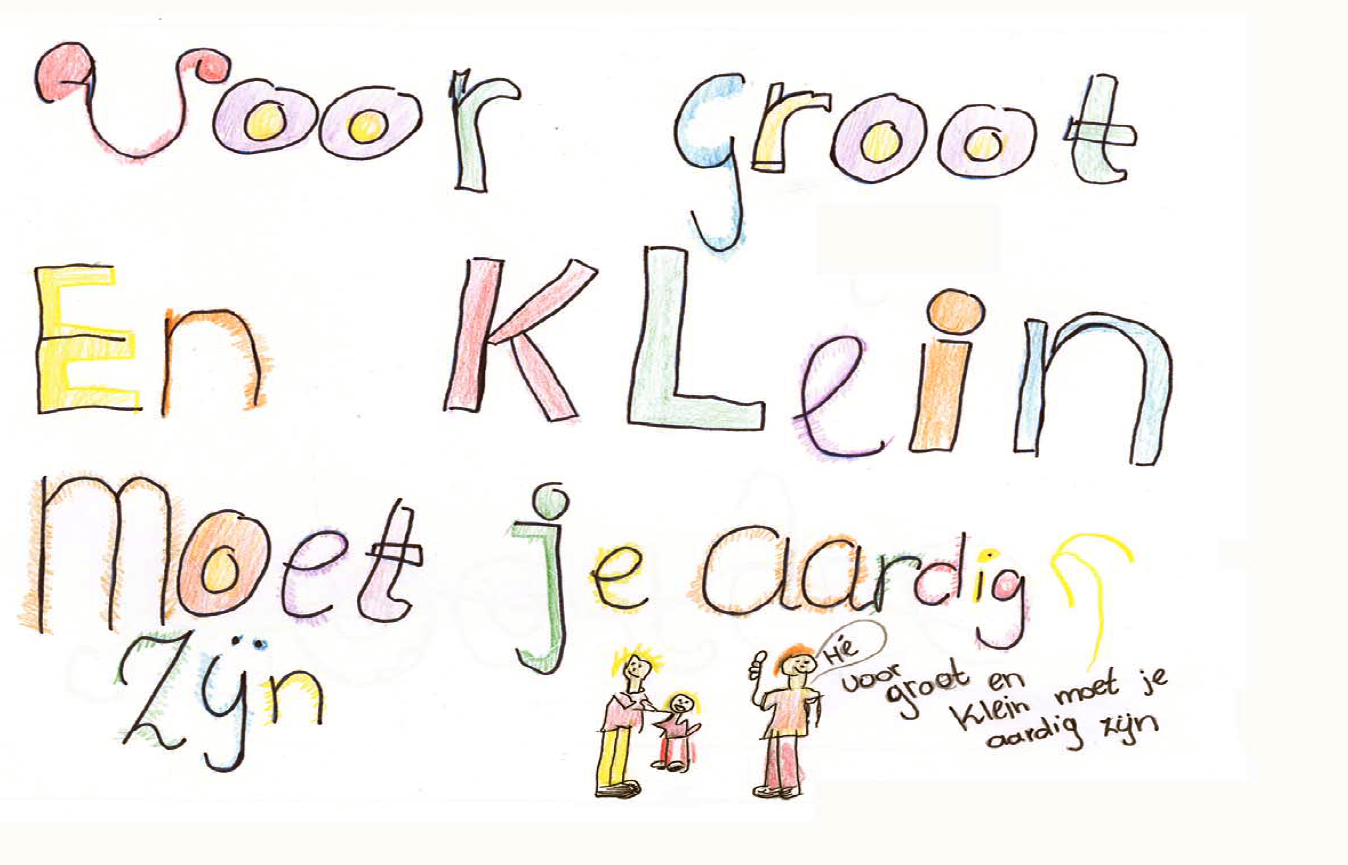 Voor groot
En KLein
Moet je aardig
Zijn
Hé
voor
groot en
Klein moet je
aardig zijn